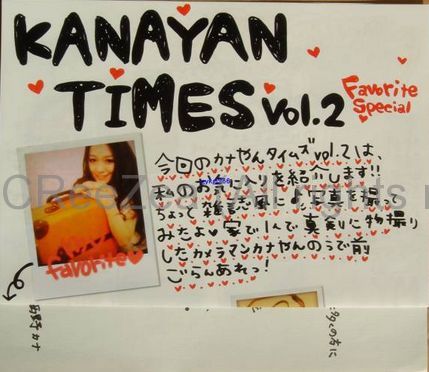 KANAYAN
TIMES Vol.2
Favorite
Special
今回のカナやんタイムズvol.2は、
私のお気に入りを紹介します!!
ちょっと雑誌風に写真を撮って
みたよ♡家で1人で真剣に物撮り
したカメラマンカナやんのうで前
ごらんあれっ!
KANAYA
favorite
西野カナ
多くの方に